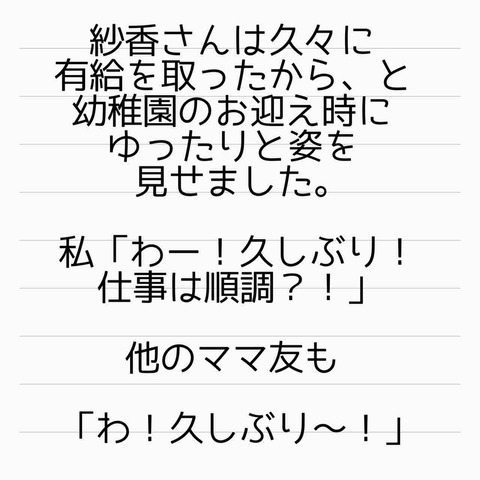 紗香さんは久々に
有給を取ったから、と
幼稚園のお迎え時に
ゆったりと姿を
見せました。
私「わー！久しぶり！
仕事は順調？！」
他のママ友も
「わ！久しぶり〜！」